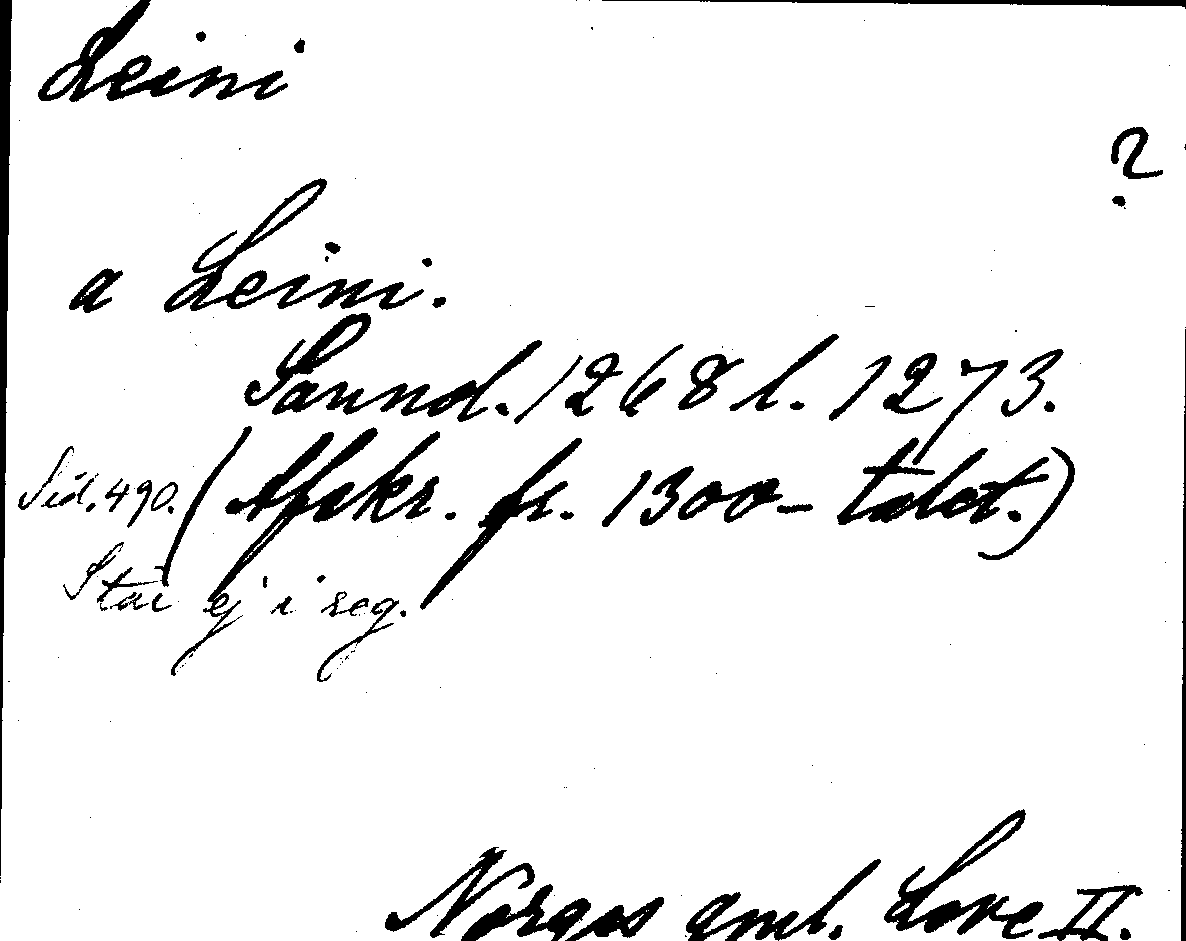 Leini
?
a Leini.
Sannol. 1268 l. 1273.
Sid. 490. (Afskr. fr. 1300-talet.)
Står ej i reg.
Norges gml. Love II.